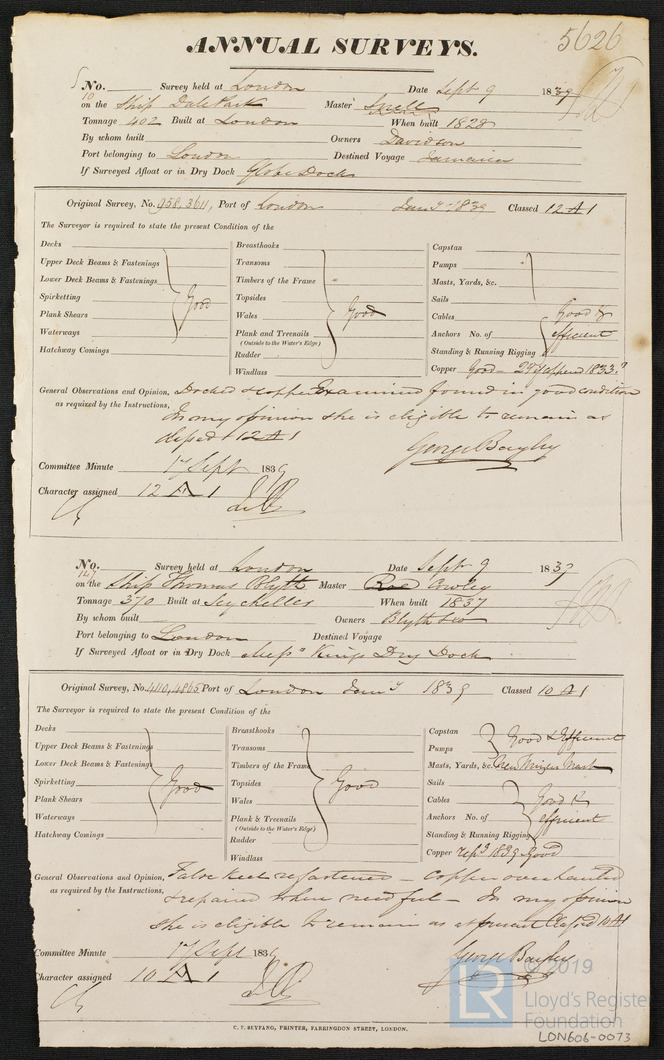 5626
ANNUAL SURVEYS.
No. Survey held at London Date Sept 9 1839
10
on the Ship Dale Park Master Snell
Tonnage 402 Built at London When built 1828
By whom built Owners Davidson
Port belonging to London Destined Voyage Jamaica
If Surveyed Afloat or in Dry Dock Globe Dock
Original Survey, No. 958, 3611, Port of London Jany 1839 Classed 12 A 1
The Surveyor is required to state the present Condition of the
Decks Breasthooks Capstan
Upper Deck Beams & Fastenings Transoms Pumps
Lower Deck Beams & Fastenings Timbers of the Frame Masts, Yards, &c.
Spirketting Good Topsides Sails
Plank Shears Wales Good Cables Good &
Waterways Plank and Treenails Anchors No. of efficient
(Outside to the Water's Edge)
Hatchway Comings Rudder Standing & Running Rigging
Windlass Copper Good 1833
General Observations and Opinion, Docked & copper Examined found in good condition
as required by the Instructions, In my opinion she is eligible to remain as
classed 12 A 1
George Bayley
Committee Minute 17 Sept 1839
Character assigned 12 A 1
No. Survey held at London Date Sept 9 1839
147
on the Ship Thomas Blyth Master Rae Owley
Tonnage 370 Built at Seychelles When built 1837
By whom built Owners Blyth
Port belonging to London Destined Voyage
If Surveyed Afloat or in Dry Dock Kings Dry Dock
Original Survey, No. 4110, 4865 Port of London Jany 1839 Classed 10 A 1
The Surveyor is required to state the present Condition of the
Decks Breasthooks Capstan Good & Efficient
Upper Deck Beams & Fastenings Transoms Pumps
Lower Deck Beams & Fastenings Timbers of the Frame Masts, Yards, &c. New Mizen Mast
Spirketting Good Topsides Good Sails
Plank Shears Wales Cables Good &
Waterways Plank & Treenails Anchors No. of efficient
(Outside to the Water's Edge)
Hatchway Comings Rudder Standing & Running Rigging
Windlass Copper repd 1839 Good
General Observations and Opinion, False Keel refastened – Copper overhauled
as required by the Instructions, & repaired where needful – In my opinion
she is eligible to remain as at present Classed 10 A 1
Committee Minute 17 Sept 1839 George Bayley
Character assigned 10 A 1
C. F. SEYFANG, PRINTER, FARRINGDON STREET, LONDON.
LR © 2019
Lloyd's Register
Foundation
LON606-0073